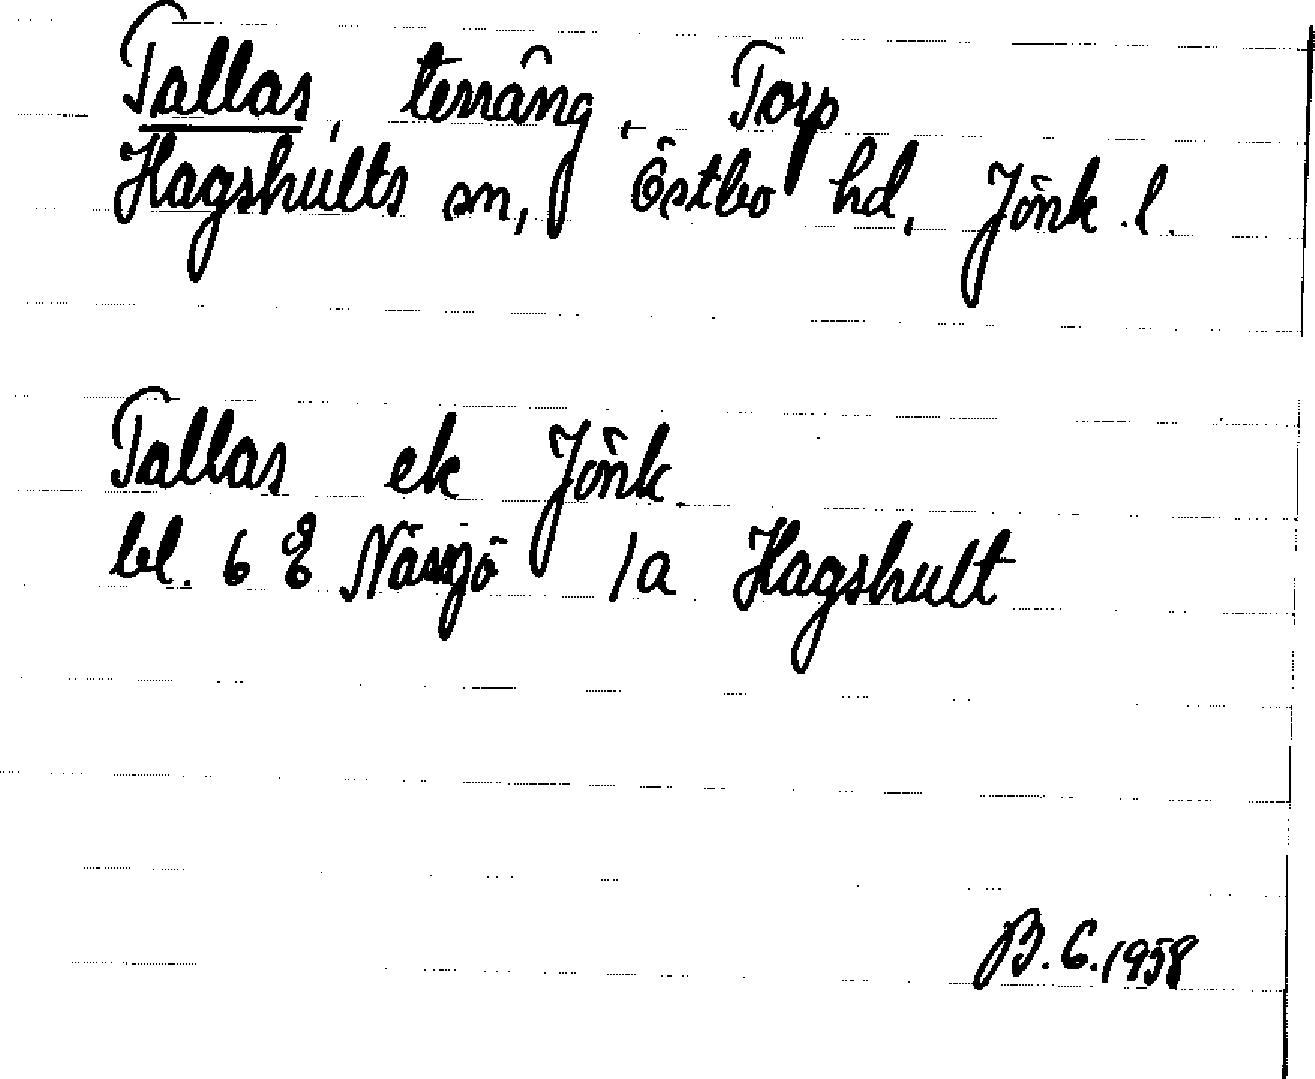 Tallas, terräng, Torp
Hagshults sn, Östbo hd, Jönk. l.
Tallas ek Jönk.
bl. 6 E Nässjö 1a Hagshult
B. C. 1958